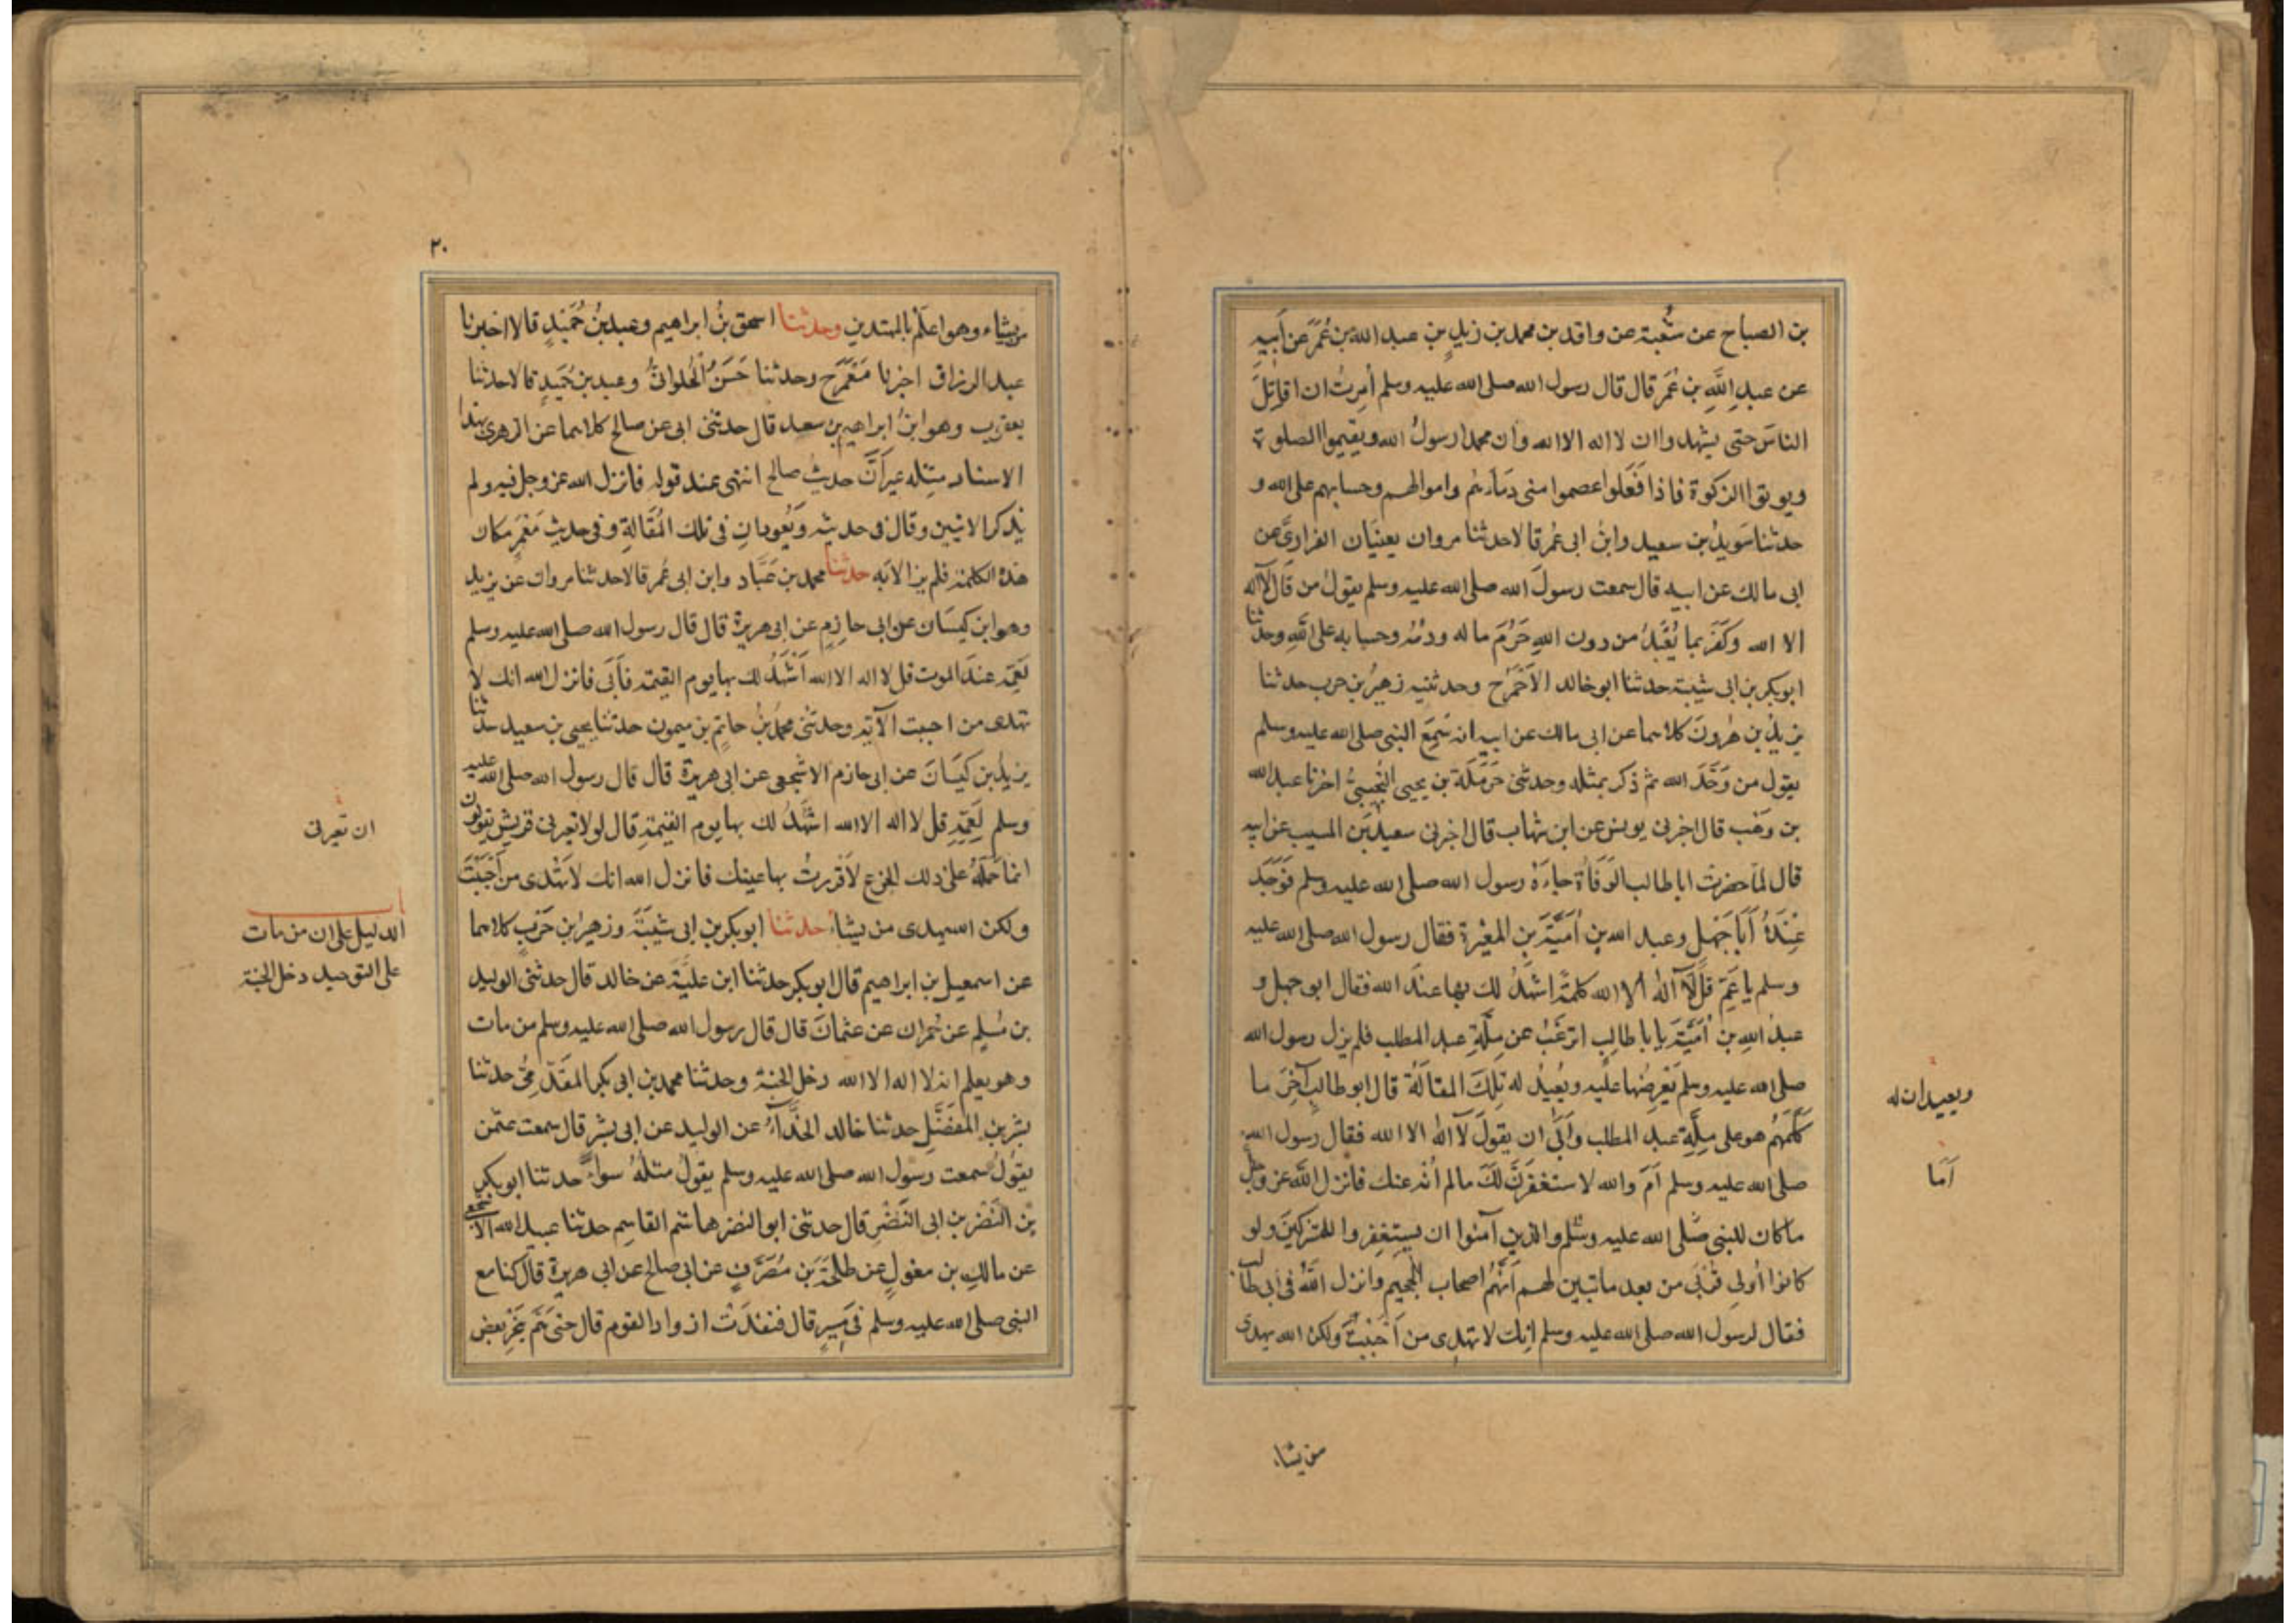 بن الصباح عن شعبة عن واقد بن محمد بن زيدِ بنِ عبد الله بن عُمَرَ عن أَبيهِ
عن عبدِ اللَّهِ بن عُمَر قال قال رسول الله صلى الله عليه وسلم أُمِرتُ ان اقاتِلَ
الناسَ حتى يشهدوا ان لا اله الا الله وان محمدا رسولُ الله ويقيموا الصلوة
ويوتوا الزكوة فاذا فَعَلوا عصموا منى دِمَاءَهُم واموالهم وحسابهم على الله و
حدثنا سَويدُ بن سعيد وابنُ ابى عُمَر قالا حدثنا مروان يعنيَان الفزارىَّ عن
ابى مالك عن ابيه قال سمعت رسولَ الله صلى الله عليه وسلم يقولُ من قَال لاَ اله
الا الله وَكَفَرَ بما يُعْبَدُ من دون اللهِ حَرُمَ ماله ودمُه وحسابه على اللهِ وحدثنا
ابو بكر بن ابى شيبة حدثنا ابو خالد الاَحْمَرُ ح وحدثنيه زهيرُ بن حرب حدثنا
يزيدُ بن هٰرونَ كلاهما عن ابى مالك عن ابيهِ انه سَمِعَ النبى صلى الله عليه وسلم
يقول من وَحَّدَ الله ثم ذكر بمثله وحدثنى حَرْمَلَة بن يحيى التُّجِيبىُّ اخبرنا عبد الله
بن وهْب قال اخبرنى يونس عن ابن شهاب قال اخبرنى سعيدُ بن المسيب عن ابيه
قال لمّا حضرت ابا طالب الوَفَاةُ جاءَهُ رسول الله صلى الله عليه وسلم فَوَجَدَ
عِنْدَهُ أَبَا جَهْلٍ وعبد الله بن أُمَيَّةَ بنِ المغيْرة فقال رسول الله صلى الله عليه
وسلم يا عَمِّ قُل لاَ الٰه الا الله كلمةً اشهَدُ لك بها عندَ الله فقال ابو جهل و
عبدُ اللهِ بن اُمَيَّةَ يا با طالبِ اترغَبُ عن مِلَّةِ عبد المطلب فلم يزل رسول الله
صلى الله عليه وسلم يَعْرِضُها عليه ويُعيدُ له تِلكَ المقالَةَ قال ابو طالبٍ آخِرَ ما
كلَّمَهُم هو على مِلَّةِ عبد المطلب وأَبَى ان يقولَ لاَ الٰه الا الله فقال رسول الله
صلى الله عليه وسلم اَمَ والله لاستغفرَنَّ لكَ مالم أُنْهَ عنك فانزل الله عز وجل
ما كان للنبى صَلى الله عليه وسَلم والذين آمنوا ان يستغفِروا للمشركين ولو
كانوا أُولِى قُرْبَى من بعد ما تبين لهم اَنَّهُم اصحاب الجحيم وانزل اللّهُ فى ابى طالب
فقال لرسول الله صلى الله عليه وسلم اِنك لا تهدِى من اَحْبَبْتَ ولكن الله يهدى
ويعيد ان له
اَمَا
من يشاء
٢٠
من يشاء وهو اعلَمُ بالمهتدين وحدثنا اسحق بنُ ابراهيم وعبد بنُ حُمَيْدٍ قالا اخبرنا
عبد الرزاق اخبرنا مَعْمَر ح وحدثنا حَسَنٌ الحُلوانىُّ وعبد بن حُمَيدٍ قالا حدثنا
يعقوب وهو ابنُ ابراهيم بن سعد قال حدثنى ابى عن صالح كلاهما عن الزهرىِّ بهذا
الاسناد مثله غير اَنَّ حديثَ صالح انتهى عند قوله فانزل الله عز وجل فيه ولم
يذكر الايتين وقال فى حديثه وَيَعُودانِ فى تلك المْقَالةِ وفى حديثِ مَعْمَرٍ مكان
هذه الكلمة فلم يزالا به حدثنا محمد بن عَبَّاد وابن ابى عُمر قالا حدثنا مروان عن يزيد
وهو ابن كيسَان عن ابى حازِمٍ عن ابى هريرة قال قال رسول الله صلى الله عليه وسلم
لِعَمِّه عندَ الموت قل لا اله الا الله اَشْهَدُ لك بها يوم القيمة فأَبَى فانزل الله انك لا
تهدى من احببت الآية وحدثنى محمدُ بنُ حاتِم بن ميمون حدثنا يحيى بن سعيد حدثنا
يزيد بن كيسَانَ عن ابى حازم الاشجعى عن ابى هريرة قال قال رسول الله صلى الله عليه
وسلم لِعَمِّهِ قل لا اله الا الله اشهَدُ لك بها يوم القيمةِ قال لولا تعيرنى قريش يقولون
انما حَمَلَهُ على ذلك الجزع لاَقْررتُ بها عينك فانزل الله انك لاَ تهدى من اَحْبَبْتَ
ولكن الله يهدى من يشاءُ حدثنا ابو بكر بن ابى شَيْبَةَ وزهيرُ بن حَرْبٍ كلاهما
عن اسمعيل بنِ ابراهيم قال ابو بكر حدثنا ابن عليَّةَ عن خالد قال حدثنى الوليد
بن مُسْلِمٍ عن حُمران عن عثمانَ قال قال رسول الله صلى الله عليه وسلم من مات
وهو يعلم انه لا اله الا الله دخل الجنة وحدثنا محمد بن ابى بكر المقَدَّمِىُّ حدثنا
بشر بن المُفَضَّلِ حدثنا خالد الحَذَّآءُ عن الوليد عن ابى بِشْرٍ قال سمعت عثمن
يقولُ سمعت رسول الله صلى الله عليه وسلم يقولُ مثلَهُ سواءً حدثنا ابو بكر
بن النَضْر بن ابى النَضْرِ قال حدثنى ابو النضر هاشم القاسِم حدثنا عبيد الله الاشجعى
عن مالك بن مغولٍ عن طلحةَ بن مُصَرِّفٍ عن ابى صالح عن ابى هريرة قال كنا مع
النبى صلى الله عليه وسلم فى مَسِيرٍ قال فنفدَتْ ازواد القوم قال حتى هَمَّ بنحْرِ بعض
ان تعيرنى
باب
الدليل على ان من مات
على التوحيد دخل الجنة